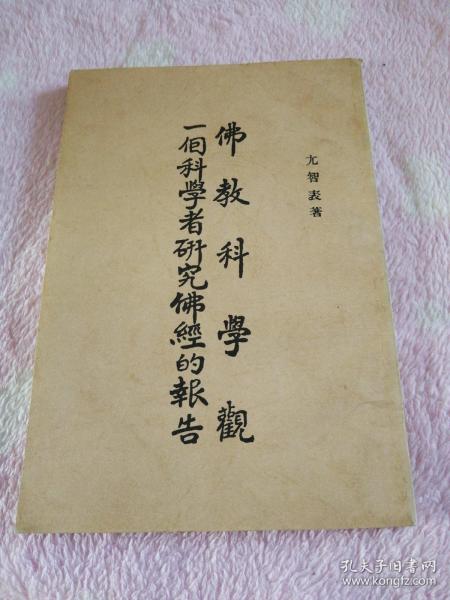 尢智表著
佛教科學觀
一個科學者研究佛經的報告
孔夫子旧书网
www.kongfz.com